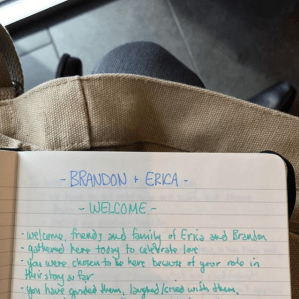 - BRANDON + ERICA -
- WELCOME -
- welcome, friends and family of Erica and Brandon
- gathered here today to celebrate love
- you were chosen to be here because of your role in
their story so far
- you have guided them, laughed/cried with them,